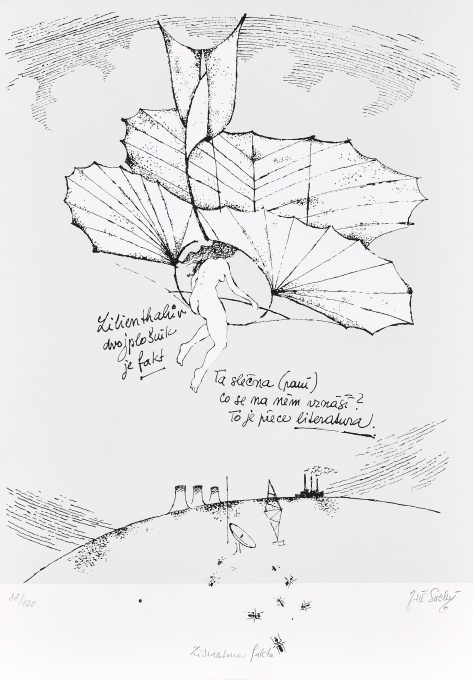 Lilienthalův
dvojplošník
je fakt
Ta slečna (paní)
co se na něm vznáší?
To je přece literatura.
Jiří Suchý
Literatura faktu